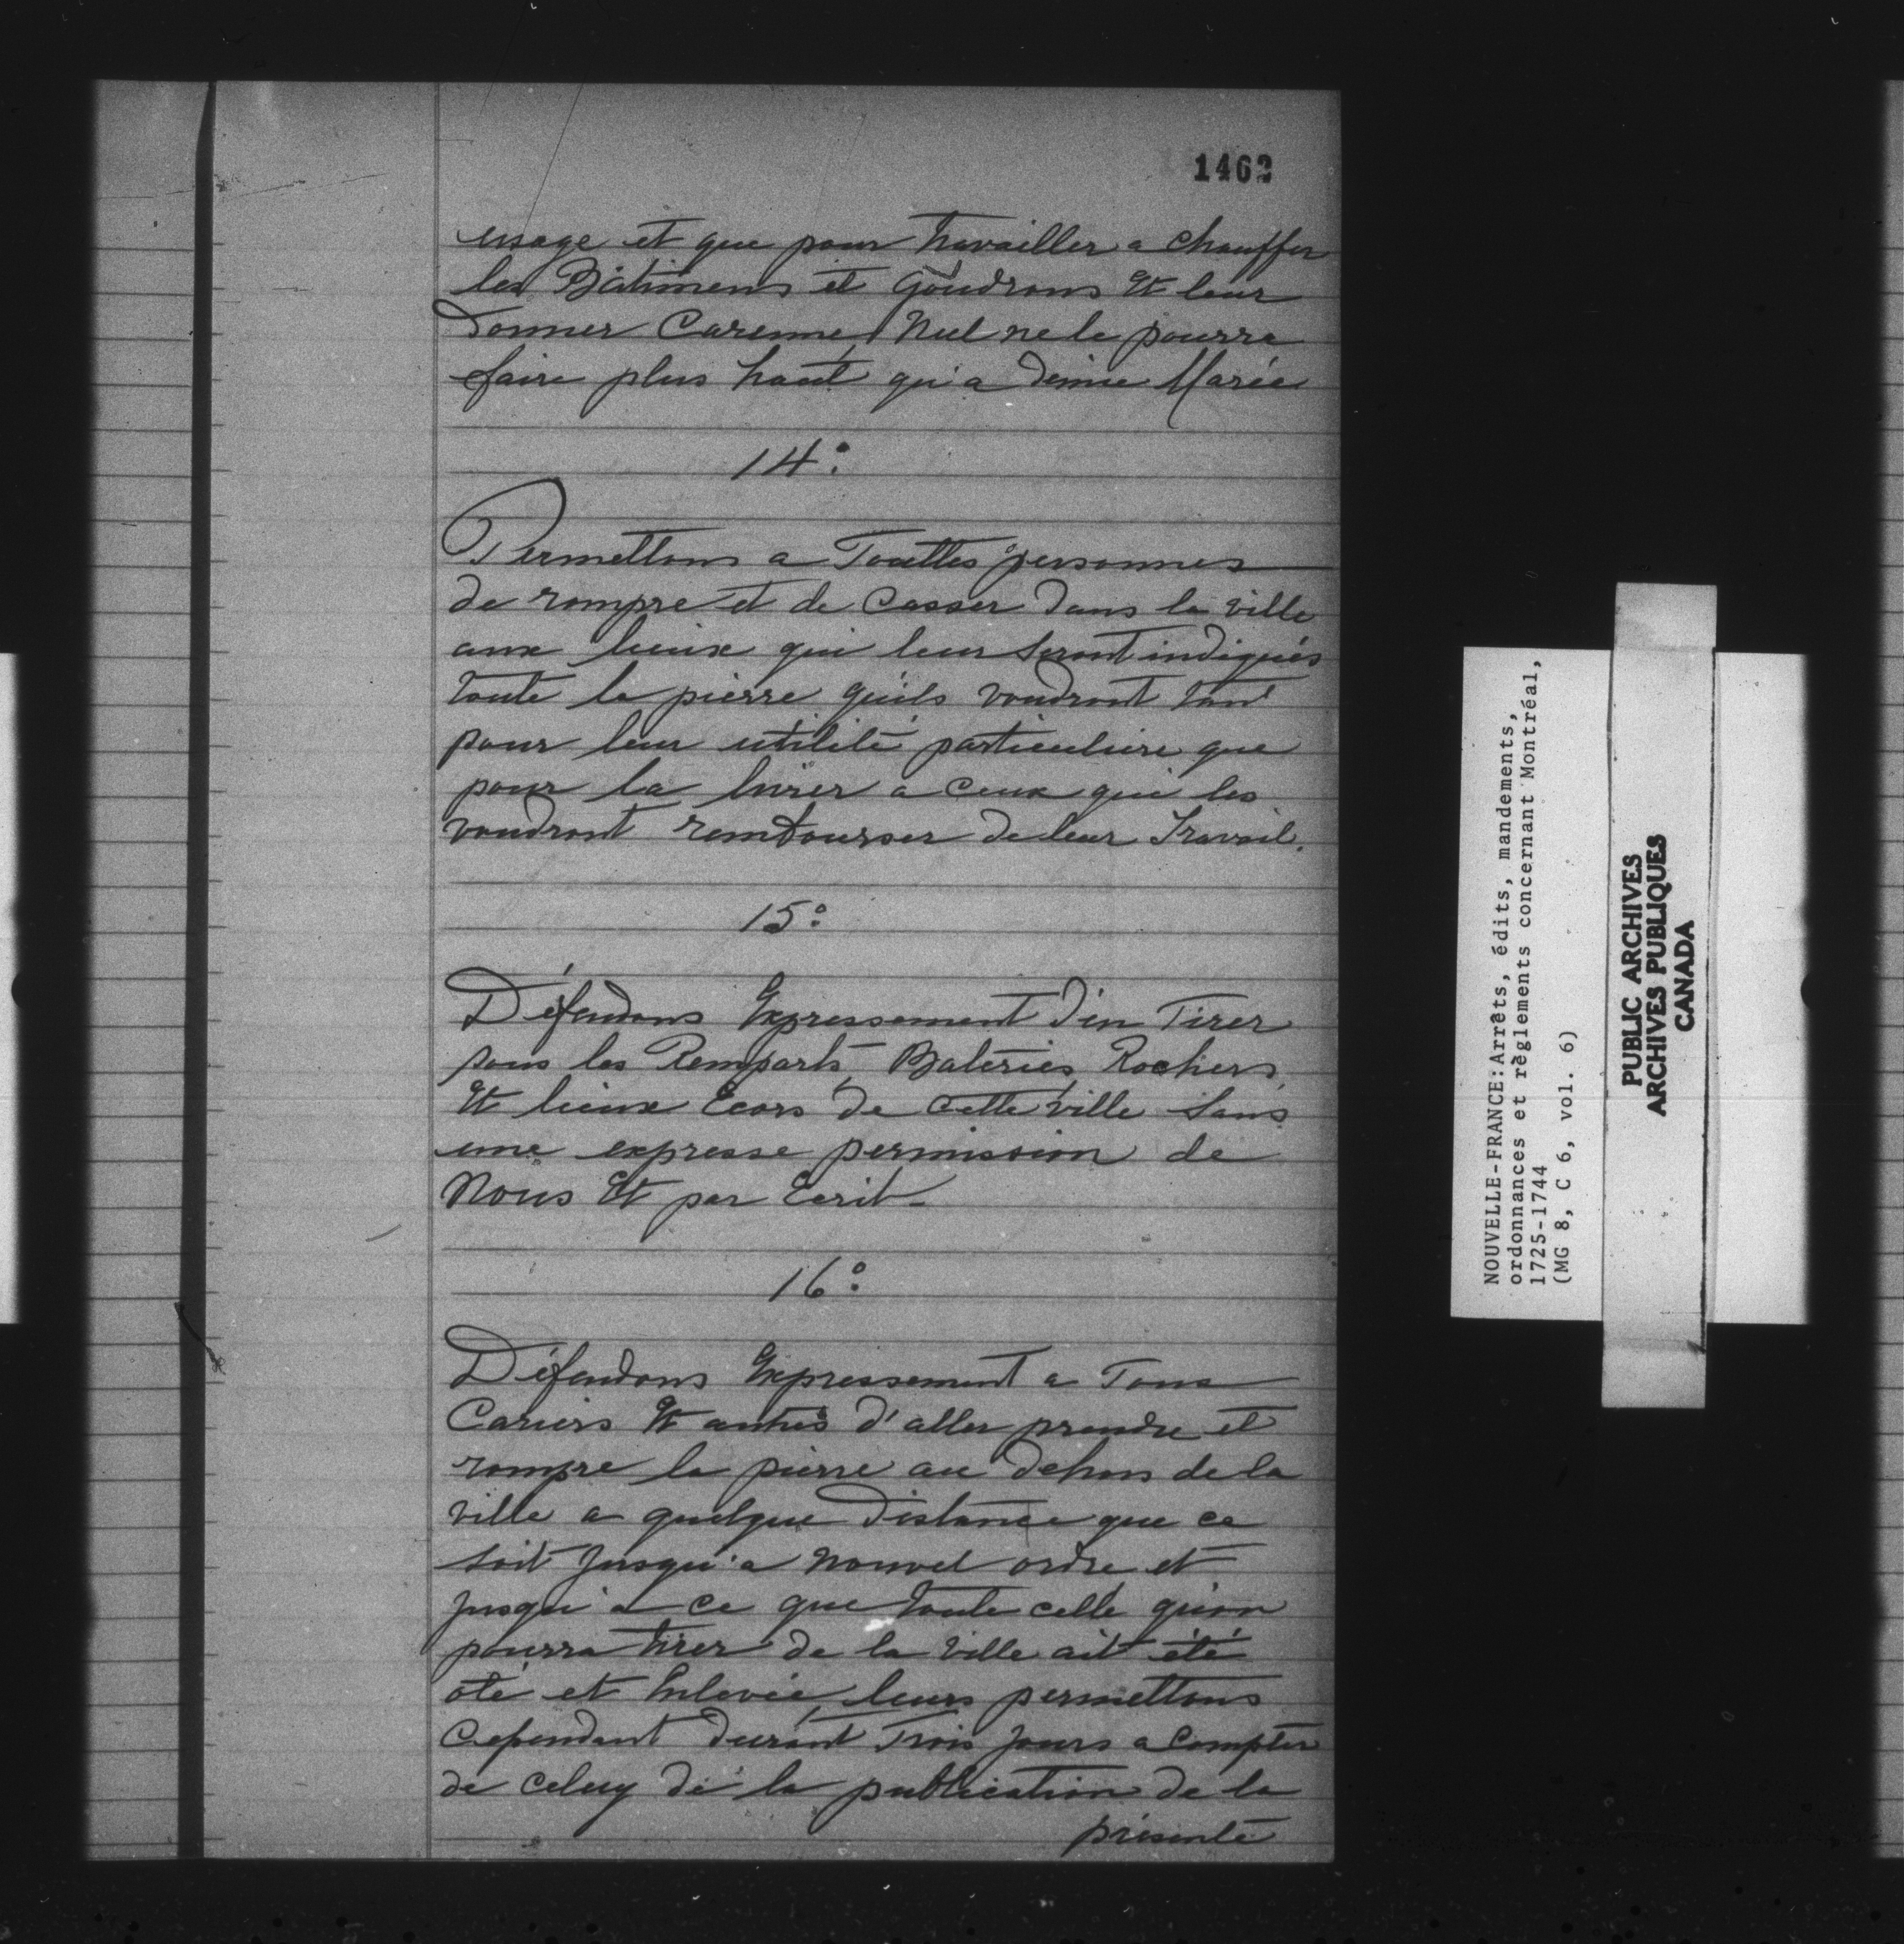 1462
usage et que pour travailler a chauffer
les Bâtimens et Goudrons Et leur
Donner Carenne, Nul ne le pourra
faire plus haut qu'a demie Marée
14°.
Permettons a Touttes personnes
de rompre et de Casser dans la ville
aux lieux qui leur seront indiqués
toute la pierre qu'ils voudront tant
pour leur utilité particuliere que
pour la livrer a ceux qui les
voudront rembourser de leur Travail.
15°.
Défendons Expressement d'en Tirer
sous les Remparts, Bateries, Rochers,
Et lieux Ecors de cette ville sans
une expresse permission de
Nous Et par Ecrit_
16°.
Défendons Expressement a Tous
Cariers Et autres d'aller prendre et
rompre la pierre au dehors de la
ville a quelque Distance que ce
soit Jusqu'a Nouvel ordre et
Jusqu'a ce que toute celle qu'on
pourra tirer de la Ville ait été
oté et Enlevée, leurs permettons
Cependant durant Trois Jours a Compter
de Celuy de la publication de la
présente
NOUVELLE-FRANCE:Arrêts, édits, mandements,
ordonnances et règlements concernant Montréal,
1725-1744
(MG 8, C 6, vol. 6)
PUBLIC ARCHIVES
ARCHIVES PUBLIQUES
CANADA